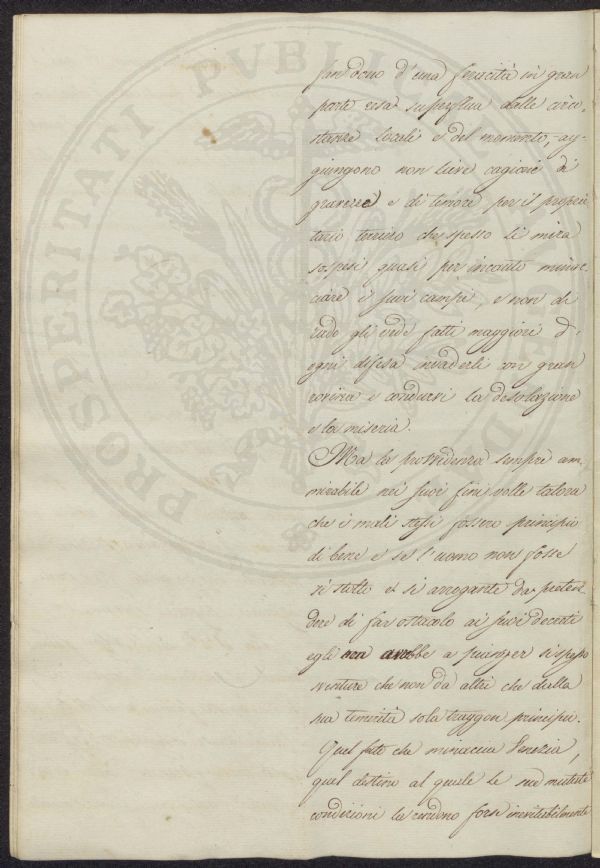 PROSPERITATI PVBLICAE
fan dono d'una feracità in gran
parte resa superflua dalle circo-
stanze locali e del momento, ag-
giungono non lieve cagione di
gravezze e di timore per il proprie
tario terriero che spesso li mira
sospesi quasi per incanto minac-
ciare i suoi campi, e non di
rado gli vede fatti maggiori d'
ogni difesa invaderli con gran
rovina e condursi la desolazione
e la miseria.
Ma la provvidenza sempre am-
mirabile nei suoi fini volle talora
che i mali stessi fossero principio
di bene e se l'uomo non fosse
sì stolto et sì arrogante da preten-
dere di far ostacolo ai suoi decreti
egli non avrebbe a pianger sì spesso
sventure che non da altri che dalla
sua temerità sola traggon principio.
Quel fato che minaccia Venezia,
quel destino al quale le sue mutate
condizioni la rendono forse inevitabilmente